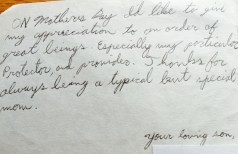 ON Mothers Day Id like to give
my appreciation to an order of
great beings. Especially my particular
Protector, and provider. Thanks for
always being a typical but special
mom.
your loving son,